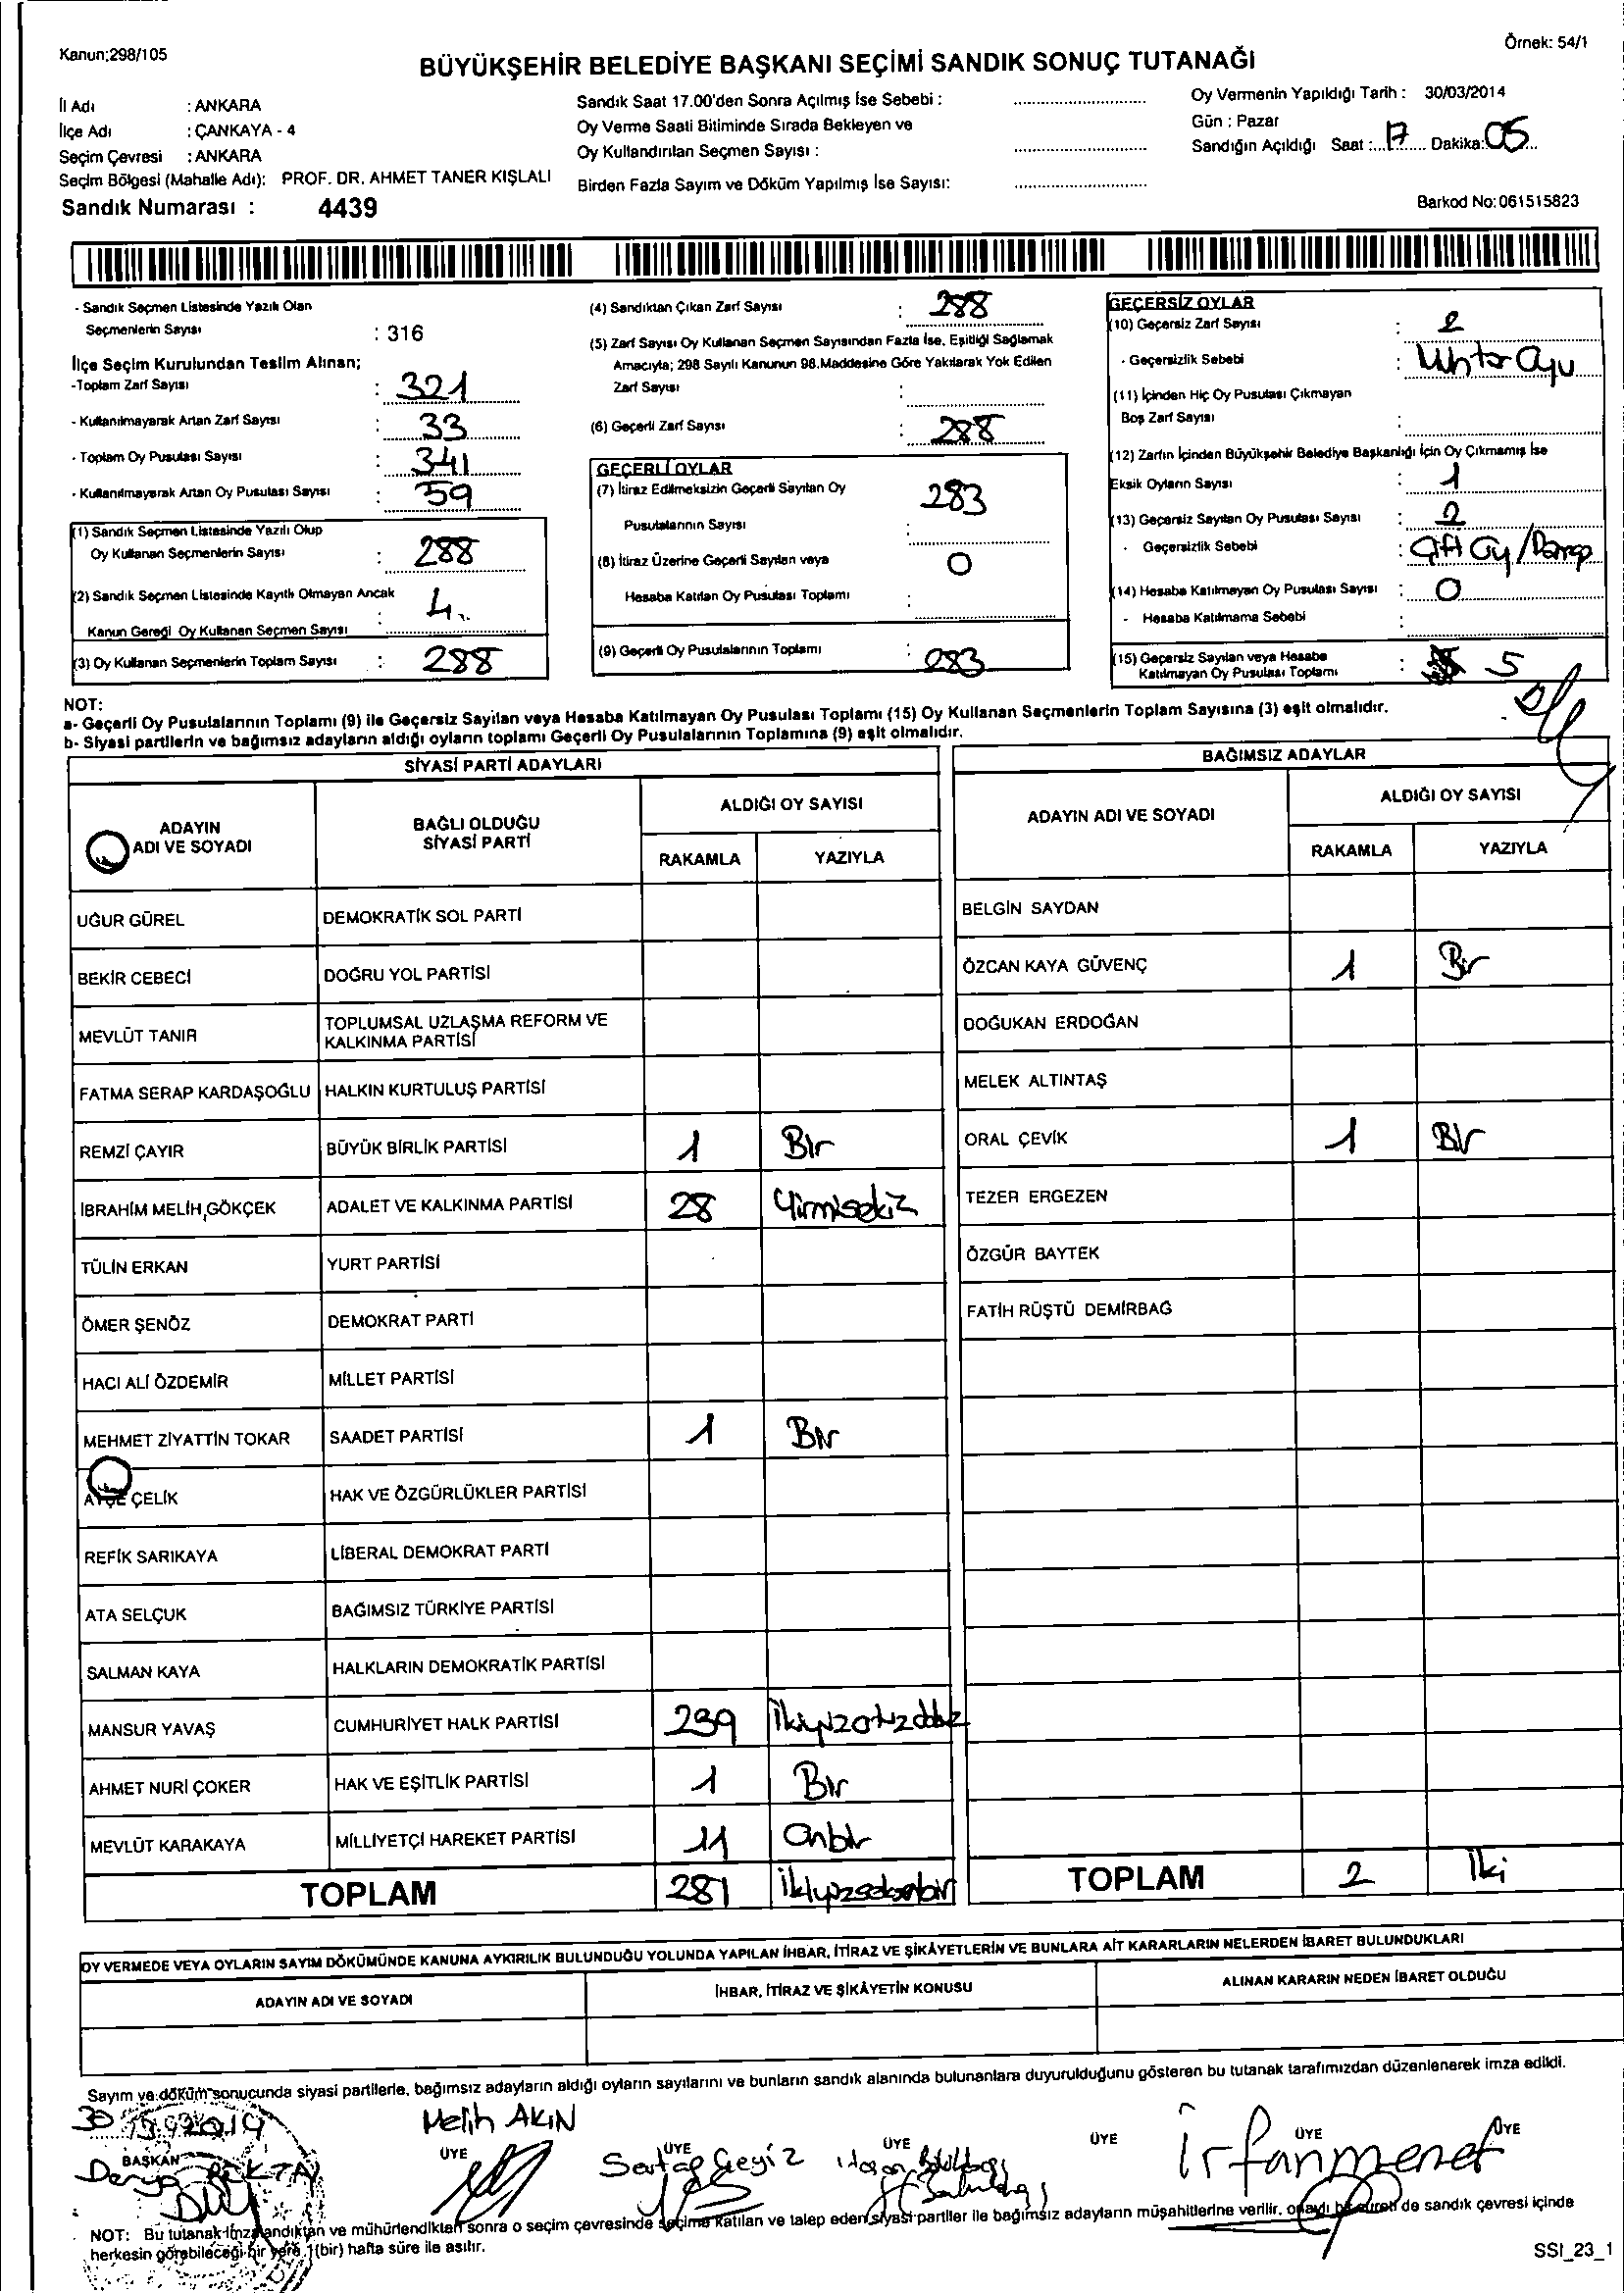 Kanun:298/105
Örnek: 54/1
BÜYÜKŞEHİR BELEDİYE BAŞKANI SEÇİMİ SANDIK SONUÇ TUTANAĞI
İl Adı : ANKARA
İlçe Adı : ÇANKAYA - 4
Seçim Çevresi : ANKARA
Seçim Bölgesi (Mahalle Adı): PROF. DR. AHMET TANER KIŞLALI
Sandık Numarası : 4439
Sandık Saat 17.00'den Sonra Açılmış İse Sebebi :
Oy Verme Saati Bitiminde Sırada Bekleyen ve
Oy Kullandırılan Seçmen Sayısı :
Birden Fazla Sayım ve Döküm Yapılmış İse Sayısı:
Oy Vermenin Yapıldığı Tarih : 30/03/2014
Gün : Pazar
Sandığın Açıldığı Saat : 17 Dakika: 05
Barkod No: 061515823
- Sandık Seçmen Listesinde Yazılı Olan
Seçmenlerin Sayısı : 316
İlçe Seçim Kurulundan Teslim Alınan;
-Toplam Zarf Sayısı : 321
- Kullanılmayarak Artan Zarf Sayısı : 33
- Toplam Oy Pusulası Sayısı : 341
- Kullanılmayarak Artan Oy Pusulası Sayısı : 59
(1) Sandık Seçmen Listesinde Yazılı Olup
Oy Kullanan Seçmenlerin Sayısı : 288
(2) Sandık Seçmen Listesinde Kayıtlı Olmayan Ancak
Kanun Gereği Oy Kullanan Seçmen Sayısı : 4
(3) Oy Kullanan Seçmenlerin Toplam Sayısı : 288
(4) Sandıktan Çıkan Zarf Sayısı : 288
(5) Zarf Sayısı Oy Kullanan Seçmen Sayısından Fazla İse, Eşitliği Sağlamak
Amacıyla; 298 Sayılı Kanunun 98.Maddesine Göre Yakılarak Yok Edilen
Zarf Sayısı :
(6) Geçerli Zarf Sayısı : 288
GEÇERLİ OYLAR
(7) İtiraz Edilmeksizin Geçerli Sayılan Oy
Pusulalarının Sayısı : 283
(8) İtiraz Üzerine Geçerli Sayılan veya
Hesaba Katılan Oy Pusulası Toplamı : 0
(9) Geçerli Oy Pusulalarının Toplamı : 283
GEÇERSİZ OYLAR
(10) Geçersiz Zarf Sayısı : 2
- Geçersizlik Sebebi :
(11) İçinden Hiç Oy Pusulası Çıkmayan
Boş Zarf Sayısı :
(12) Zarfın İçinden Büyükşehir Belediye Başkanlığı İçin Oy Çıkmamış İse
Eksik Oyların Sayısı : 1
(13) Geçersiz Sayılan Oy Pusulası Sayısı : 2
- Geçersizlik Sebebi : Çift Oy /
(14) Hesaba Katılmayan Oy Pusulası Sayısı : 0
- Hesaba Katılmama Sebebi :
(15) Geçersiz Sayılan veya Hesaba
Katılmayan Oy Pusulası Toplamı : 5
NOT:
a- Geçerli Oy Pusulalarının Toplamı (9) ile Geçersiz Sayılan veya Hesaba Katılmayan Oy Pusulası Toplamı (15) Oy Kullanan Seçmenlerin Toplam Sayısına (3) eşit olmalıdır.
b- Siyasi partilerin ve bağımsız adayların aldığı oyların toplamı Geçerli Oy Pusulalarının Toplamına (9) eşit olmalıdır.
SİYASİ PARTİ ADAYLARI
ADAYIN ADI VE SOYADI BAĞLI OLDUĞU SİYASİ PARTİ ALDIĞI OY SAYISI
RAKAMLA YAZIYLA
UĞUR GÜREL DEMOKRATİK SOL PARTİ
BEKİR CEBECİ DOĞRU YOL PARTİSİ
MEVLÜT TANIR TOPLUMSAL UZLAŞMA REFORM VE KALKINMA PARTİSİ
FATMA SERAP KARDAŞOĞLU HALKIN KURTULUŞ PARTİSİ
REMZİ ÇAYIR BÜYÜK BİRLİK PARTİSİ 1 Bir
İBRAHİM MELİH GÖKÇEK ADALET VE KALKINMA PARTİSİ 28 Yirmisekiz
TÜLİN ERKAN YURT PARTİSİ
ÖMER ŞENÖZ DEMOKRAT PARTİ
HACI ALİ ÖZDEMİR MİLLET PARTİSİ
MEHMET ZİYATTİN TOKAR SAADET PARTİSİ 1 Bir
AYŞE ÇELİK HAK VE ÖZGÜRLÜKLER PARTİSİ
REFİK SARIKAYA LİBERAL DEMOKRAT PARTİ
ATA SELÇUK BAĞIMSIZ TÜRKİYE PARTİSİ
SALMAN KAYA HALKLARIN DEMOKRATİK PARTİSİ
MANSUR YAVAŞ CUMHURİYET HALK PARTİSİ 239 İkiyüzotuzdokuz
AHMET NURİ ÇOKER HAK VE EŞİTLİK PARTİSİ 1 Bir
MEVLÜT KARAKAYA MİLLİYETÇİ HAREKET PARTİSİ 11 Onbir
TOPLAM 281 İkiyüzseksenbir
BAĞIMSIZ ADAYLAR
ADAYIN ADI VE SOYADI ALDIĞI OY SAYISI
RAKAMLA YAZIYLA
BELGİN SAYDAN
ÖZCAN KAYA GÜVENÇ 1 Bir
DOĞUKAN ERDOĞAN
MELEK ALTINTAŞ
ORAL ÇEVİK 1 Bir
TEZER ERGEZEN
ÖZGÜR BAYTEK
FATİH RÜŞTÜ DEMİRBAĞ
TOPLAM 2 İki
OY VERMEDE VEYA OYLARIN SAYIM DÖKÜMÜNDE KANUNA AYKIRILIK BULUNDUĞU YOLUNDA YAPILAN İHBAR, İTİRAZ VE ŞİKÂYETLERİN VE BUNLARA AİT KARARLARIN NELERDEN İBARET BULUNDUKLARI
ADAYIN ADI VE SOYADI İHBAR, İTİRAZ VE ŞİKÂYETİN KONUSU ALINAN KARARIN NEDEN İBARET OLDUĞU
Sayım ve döküm sonucunda siyasi partilerle, bağımsız adayların aldığı oyların sayılarını ve bunların sandık alanında bulunanlara duyurulduğunu gösteren bu tutanak tarafımızdan düzenlenerek imza edildi.
Melih AKIN
BAŞKAN ÜYE ÜYE ÜYE ÜYE ÜYE ÜYE
Derya
NOT: Bu tutanak imzalandıktan ve mühürlendikten sonra o seçim çevresinde seçime katılan ve talep eden siyasi partiler ile bağımsız adayların müşahitlerine verilir, onaylı bir sureti de sandık çevresi içinde
herkesin görebileceği bir yere 1(bir) hafta süre ile asılır.
SSI_23_1